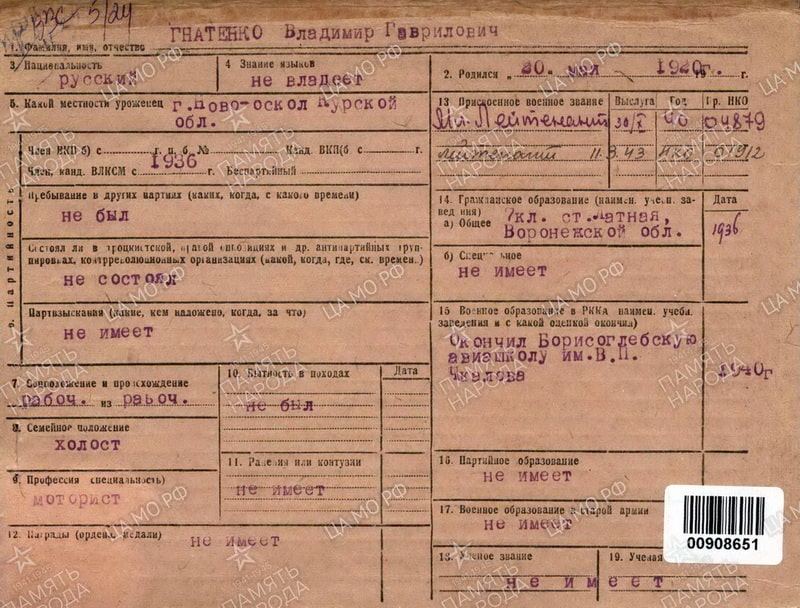 5/24
ГНАТЕНКО Владимир Гаврилович
1. Фамилия, имя, отчество
3. Национальность
русский
4 Знание языков
не владеет
2. Родился „ 20. мая 1920г. г.
5. Какой местности уроженец г.Ново-оскол Курской
обл.
13 Присвоенное военное звание Выслуга Год Пр. НКО
Мл. Лейтенант 30/X 40 04879
лейтенант 11.3.43 НКО 019/2
6. Партийность
Член ВКП(б) с г. п. б. № Канд. ВКП(б с г.
1936
Член, канд. ВЛКСМ с г. Беспартийный
Пребывание в других партиях (каких, когда, с какого времени)
не был
Состоял ли в троцкистской, правой оппозициях и др. антипартийных груп-
пировках, контрреволюционных организациях (какой, когда, где, см. времен.)
не состоял
Партвзыскания (какие, кем наложено, когда, за что)
не имеет
14. Гражданское образование (наимен. учебн. за-
вед ния) Дата
а) Общее 7кл. ст. атная,
Воронежской обл. 1936
б) Специальное
не имеет
15 Военное образование в РККА наимен. учебн.
заведения и с какой оценкой окончил)
Окончил Борисоглебскую
авиашколу им.В.П.
Чкалова 1940г
7. Соцположение и происхождение
рабоч. из рабоч.
8. Семейное положение
холост
9. Профессия специальность)
моторист
10. Бытность в походах Дата
не был
11. Ранения или контузии
не имеет
12. Награды (ордена медали) не имеет
16. Партийное образование
не имеет
17. Военное образование в старой армии
не имеет
18. Ученое звание 19. Ученая
не имеет
00908651
ЦА МО РФ
ПАМЯТЬ
НАРОДА
1941-1945